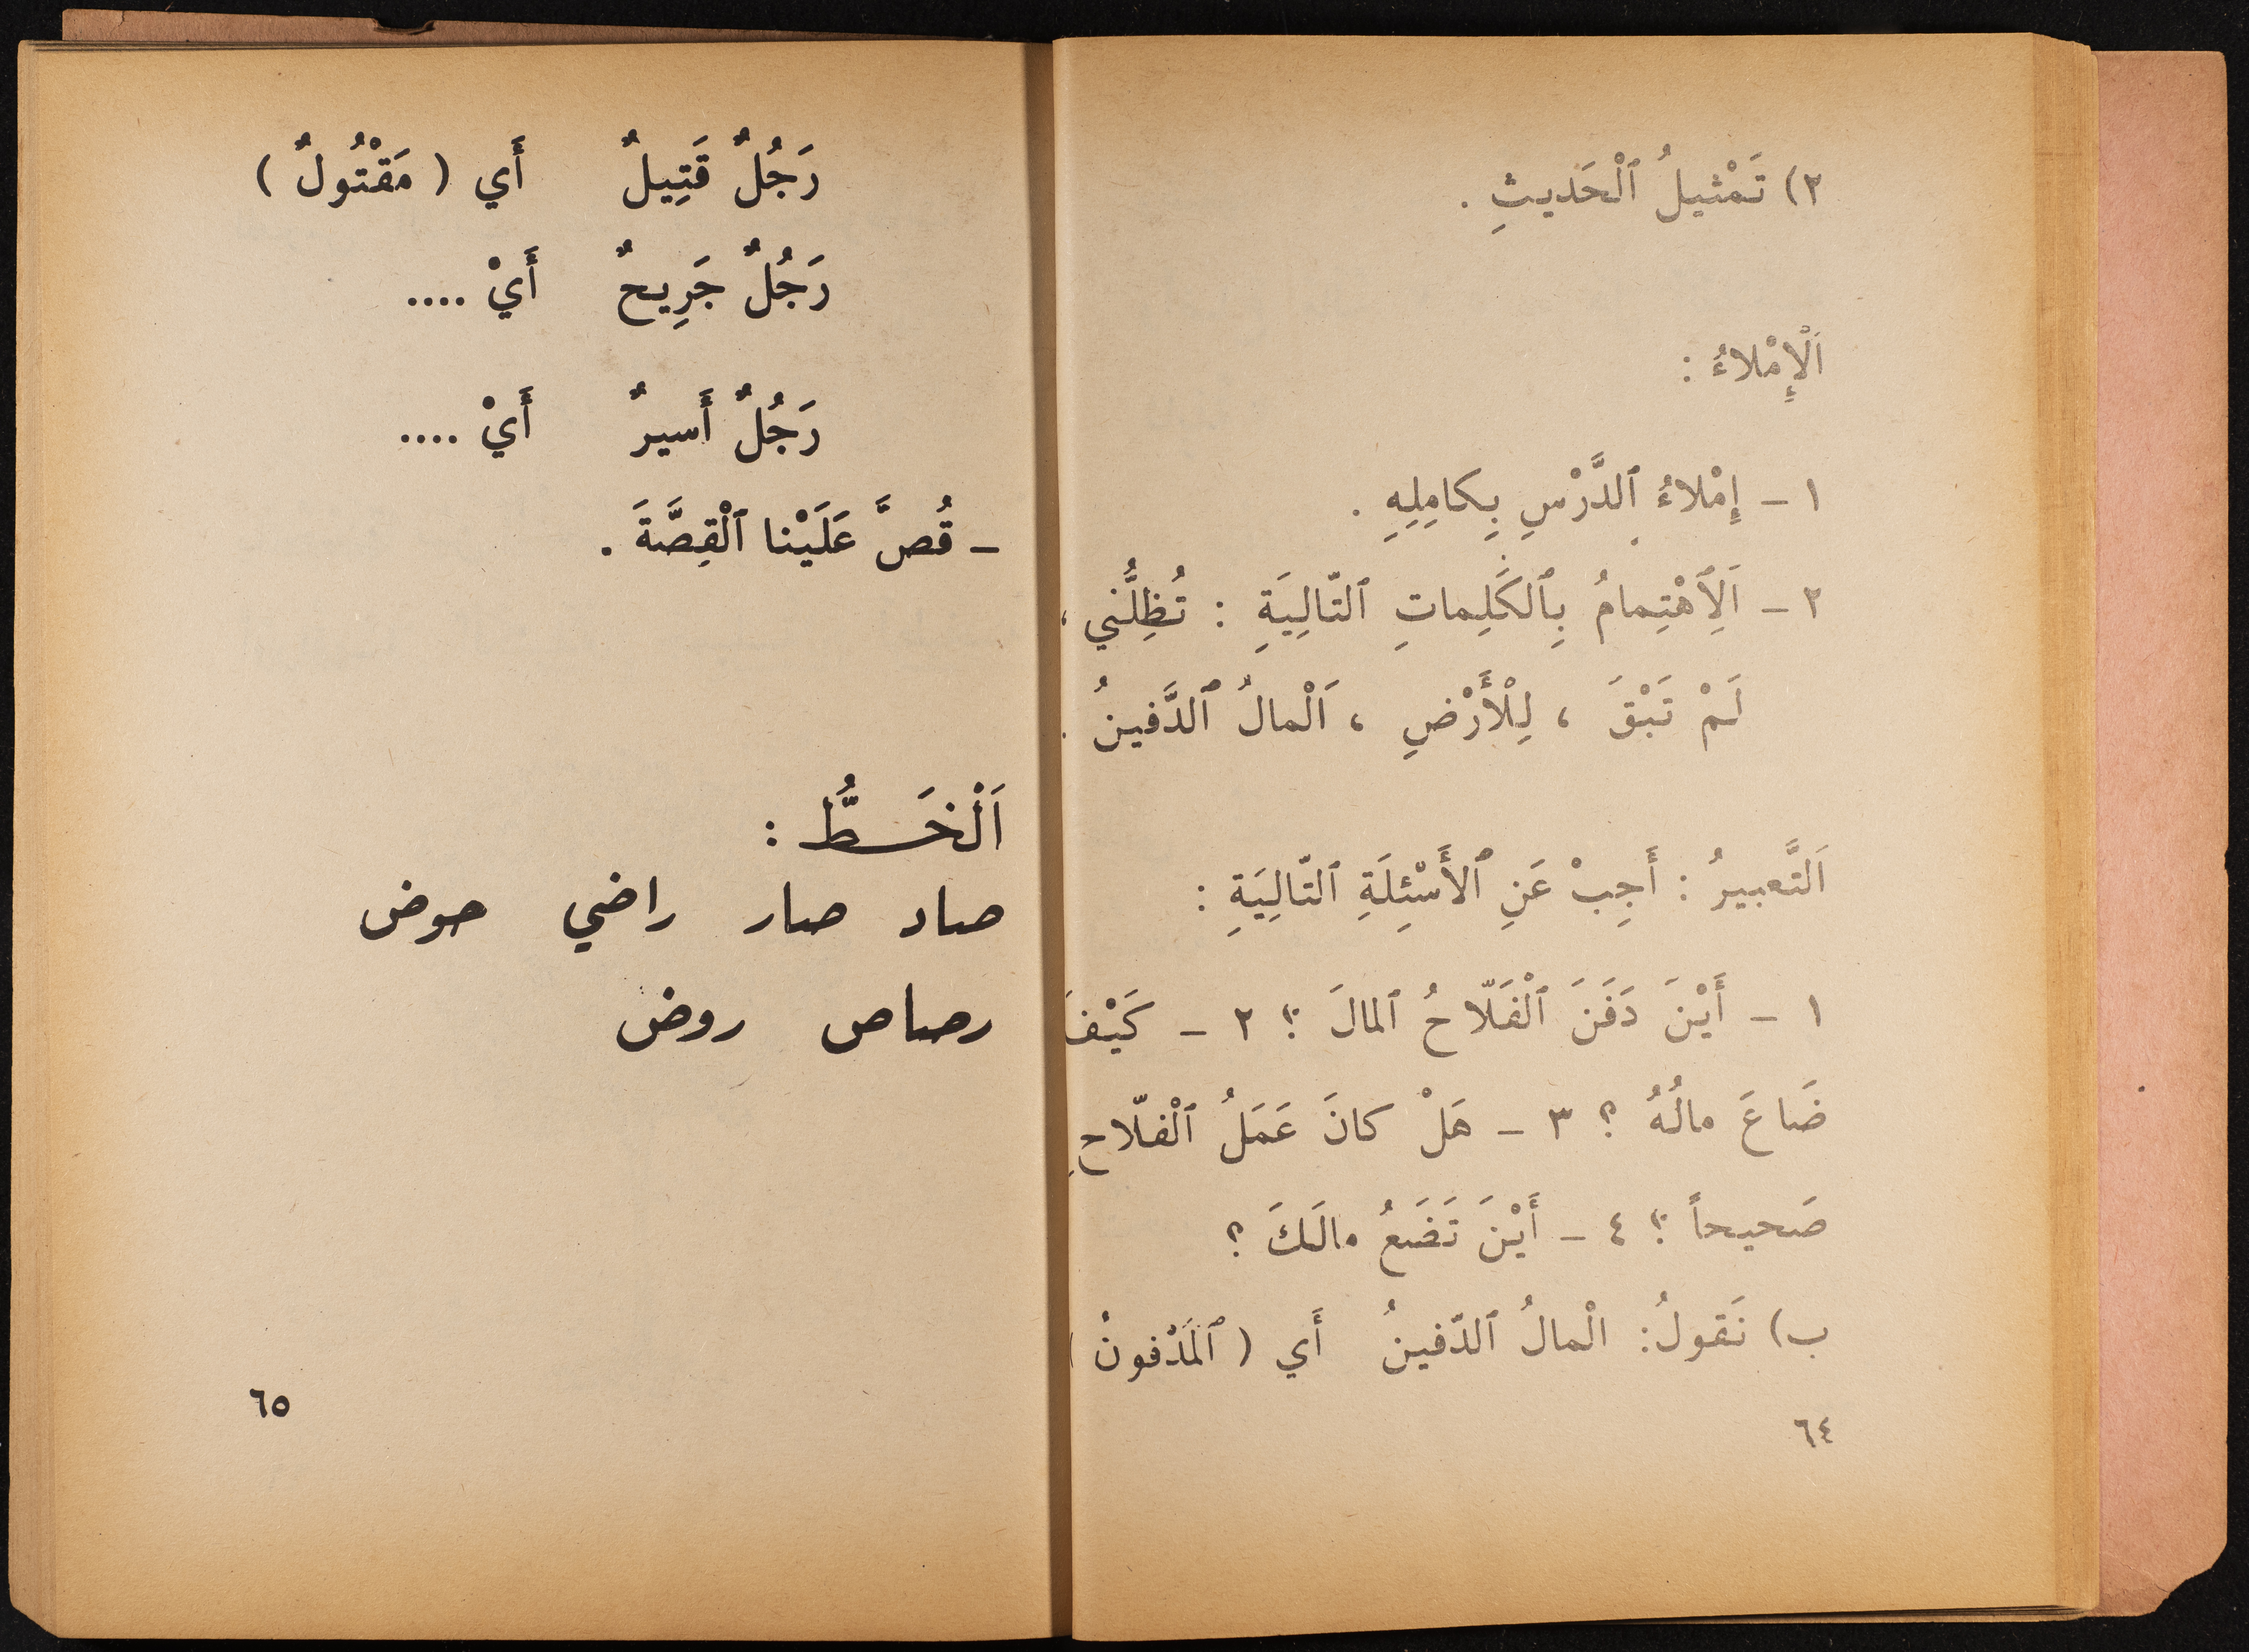 ٢) تَمْثيلُ ٱلْحَديثِ .
اَلْإِمْلاءُ :
١ - إِمْلاءُ ٱلدَّرْسِ بِكامِلِهِ .
٢ - اَلِٱهْتِمامُ بِٱلكَلِماتِ ٱلتّالِيَةِ : تُظِلُّني ،
لَمْ تَبْقَ ، لِلْأَرْضِ ، اَلْمالُ ٱلدَّفينُ .
اَلتَّعبيرُ : أَجِبْ عَنِ ٱلأَسْئِلَةِ ٱلتّالِيَةِ :
١ - أَيْنَ دَفَنَ ٱلْفَلّاحُ ٱلمالَ ؟ ٢ - كَيْفَ
ضَاعَ مالُهُ ؟ ٣ - هَلْ كانَ عَمَلُ ٱلْفلّاحِ
صَحيحاً ؟ ٤ - أَيْنَ تَضَعُ مالَكَ ؟
ب) نَقولُ: الْمالُ ٱلدّفينُ أَي ( ٱلمَدْفونُ )
٦٤
رَجُلٌ قَتِيلٌ أَي ( مَقْتُولٌ )
رَجُلٌ جَرِيحٌ أَيْ ....
رَجُلٌ أَسيرٌ أَيْ ....
- قُصَّ عَلَيْنا ٱلْقِصَّةَ .
اَلْخَـطُّ :
صاد صار راضي حوض
رصاص روض
٦٥